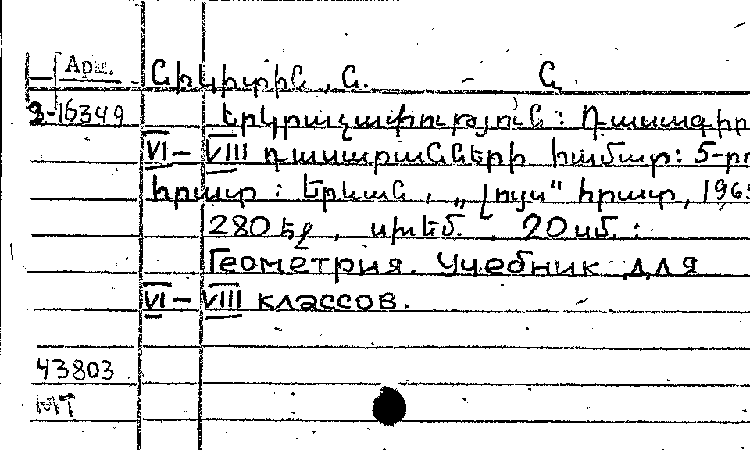 Арм. Նիկիտին, Ն. Ն.
3-16349 Երկրաչափություն: Դասագիր
VI – VIII դասարանների համար: 5-րդ
հրատ: Երևան, „Լույս" հրատ, 196
280 էջ, սխեմ. 20 սմ:
Геометрия. Учебник для
VI – VIII классов.
43803
МТ